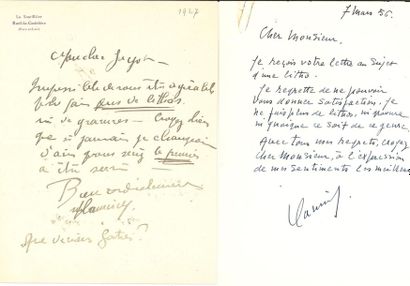 La Tourillière
1927
Mon cher Guyot
Impossible de vous être agréable
fais plus de lithos
ni de gravures - Croyez bien
que si jamais je changeais
d'avis vous seriez le premier
à être servi
Bien cordialement
Vlaminck
Que devient
7 mars 56.
Cher Monsieur,
Je reçois votre lettre au sujet
d'une litho.
Je regrette de ne pouvoir
vous donner satisfaction. Je
ne fais plus de lithos, ni gravure
ni quoique ce soit de ce genre.
Avec tous mes regrets, croyez
cher Monsieur, à l'expression
de mes sentiments les meilleurs
Vlaminck